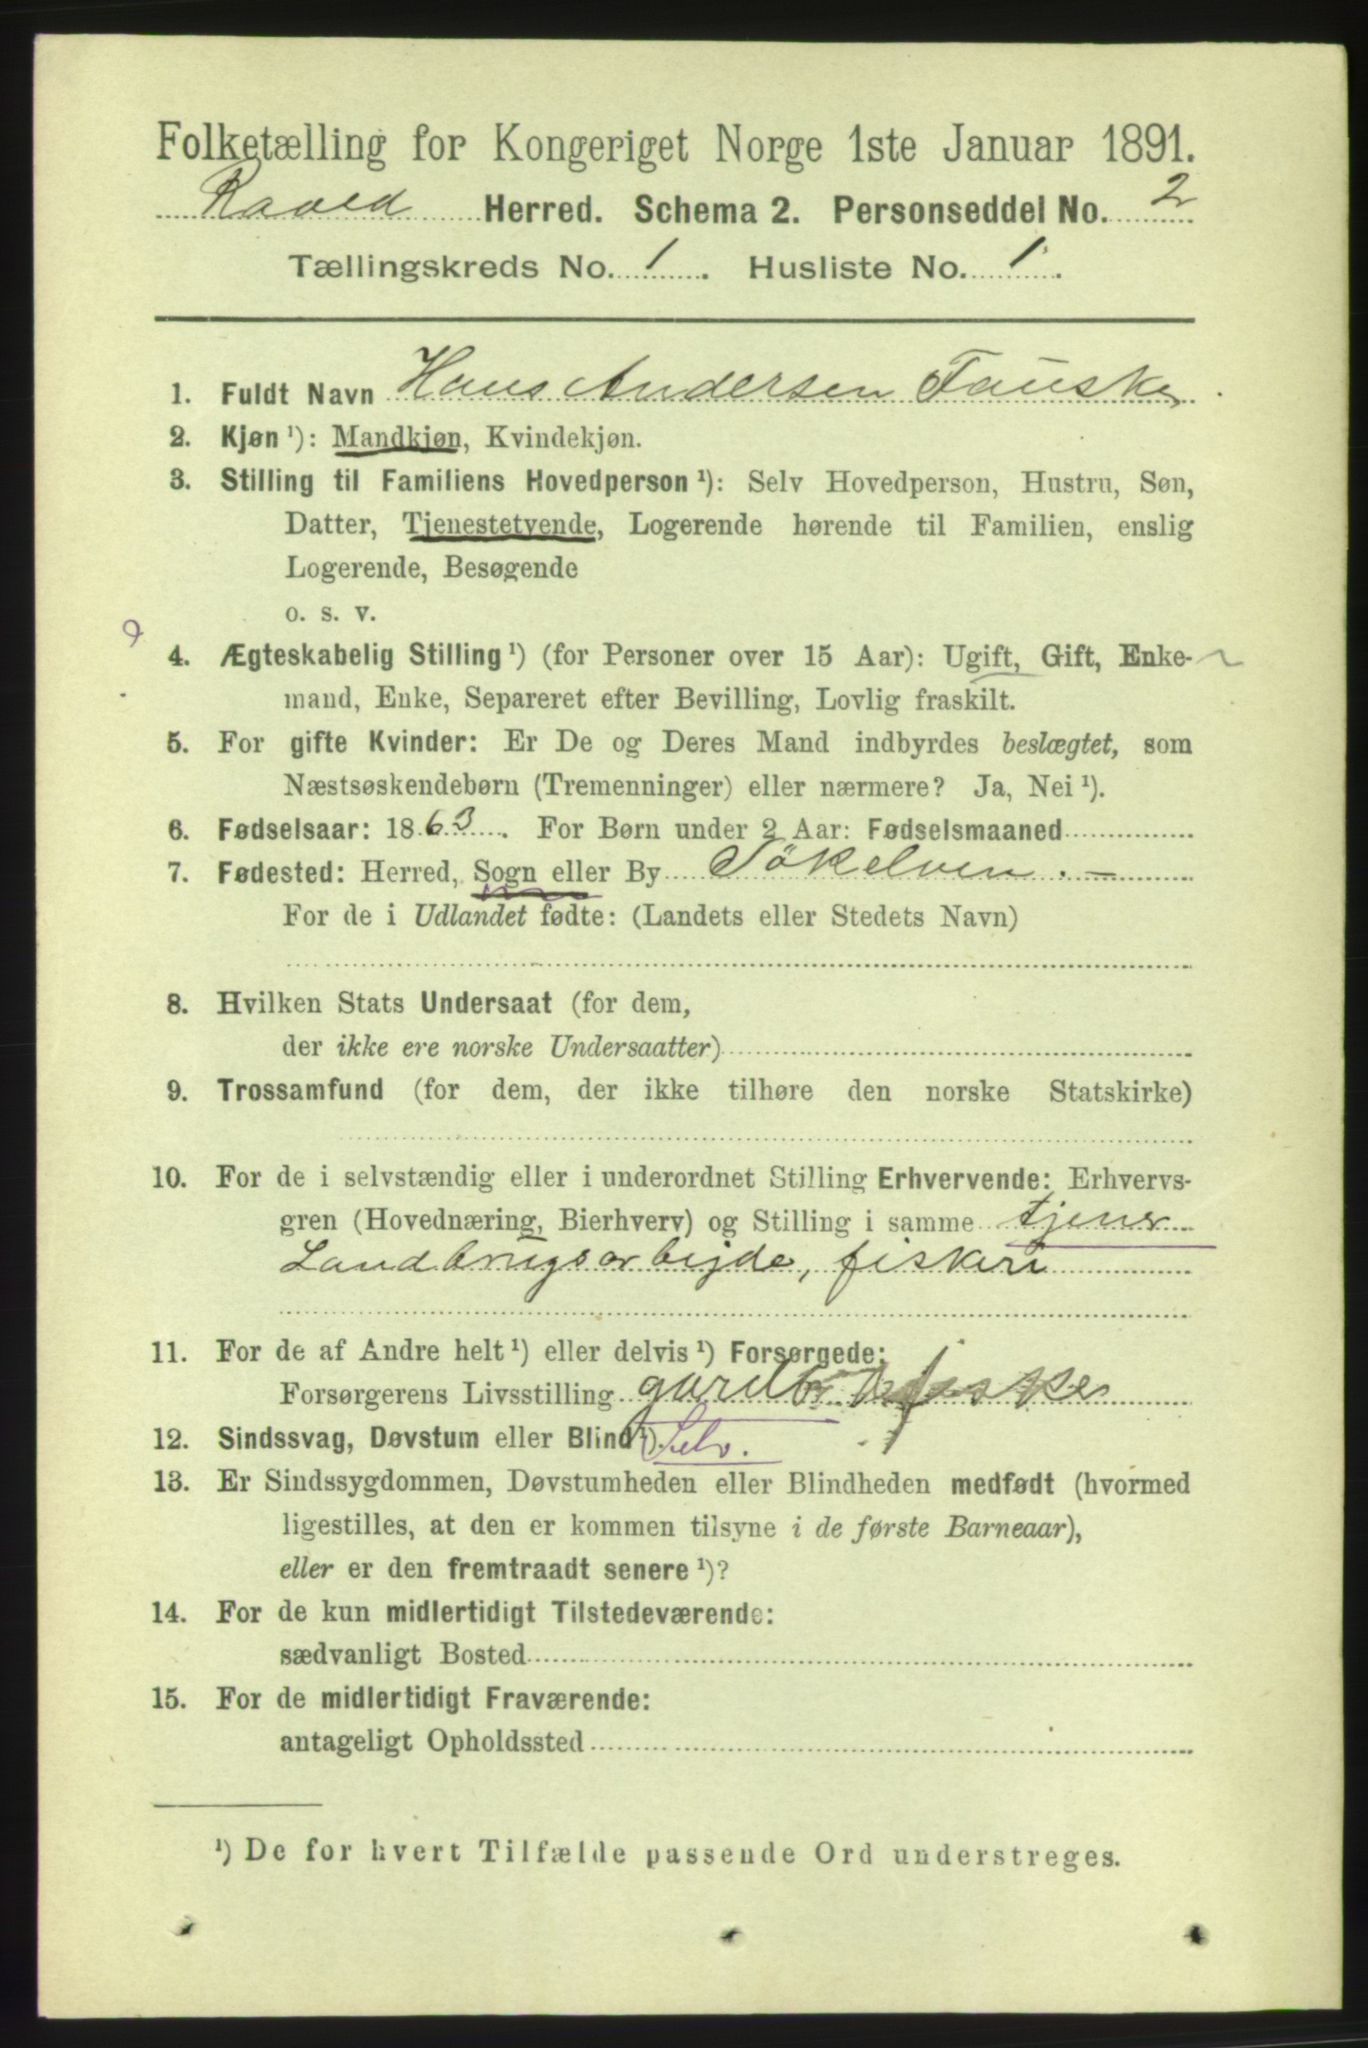 Folketælling for Kongeriget Norge 1ste Januar 1891.
Herred. Schema 2. Personseddel No. 2
Tællingskreds No. 1. Husliste No. 1.
1. Fuldt Navn Hans Andersen Fauske
2. Kjøn ¹): Mandkjøn, Kvindekjøn.
3. Stilling til Familiens Hovedperson ¹): Selv Hovedperson, Hustru, Søn,
Datter, Tjenestetyende, Logerende hørende til Familien, enslig
Logerende, Besøgende
o. s. v.
9
4. Ægteskabelig Stilling ¹) (for Personer over 15 Aar): Ugift, Gift, Enke-
mand, Enke, Separeret efter Bevilling, Lovlig fraskilt.
5. For gifte Kvinder: Er De og Deres Mand indbyrdes beslægtet, som
Næstsøskendebørn (Tremenninger) eller nærmere? Ja, Nei ¹).
6. Fødselsaar: 1863. For Børn under 2 Aar: Fødselsmaaned
7. Fødested: Herred, Sogn eller By Sökelven. —
For de i Udlandet fødte: (Landets eller Stedets Navn)
8. Hvilken Stats Undersaat (for dem,
der ikke ere norske Undersaatter)
9. Trossamfund (for dem, der ikke tilhøre den norske Statskirke)
10. For de i selvstændig eller i underordnet Stilling Erhvervende: Erhvervs-
gren (Hovednæring, Bierhverv) og Stilling i samme tjener
Landbrugsarbejde, fiskeri
11. For de af Andre helt ¹) eller delvis ¹) Forsørgede:
Forsørgerens Livsstilling gardbr
12. Sindssvag, Døvstum eller Blind ¹). Selv.
13. Er Sindssygdommen, Døvstumheden eller Blindheden medfødt (hvormed
ligestilles, at den er kommen tilsyne i de første Barneaar),
eller er den fremtraadt senere ¹)?
14. For de kun midlertidigt Tilstedeværende:
sædvanligt Bosted
15. For de midlertidigt Fraværende:
antageligt Opholdssted
¹) De for hvert Tilfælde passende Ord understreges.